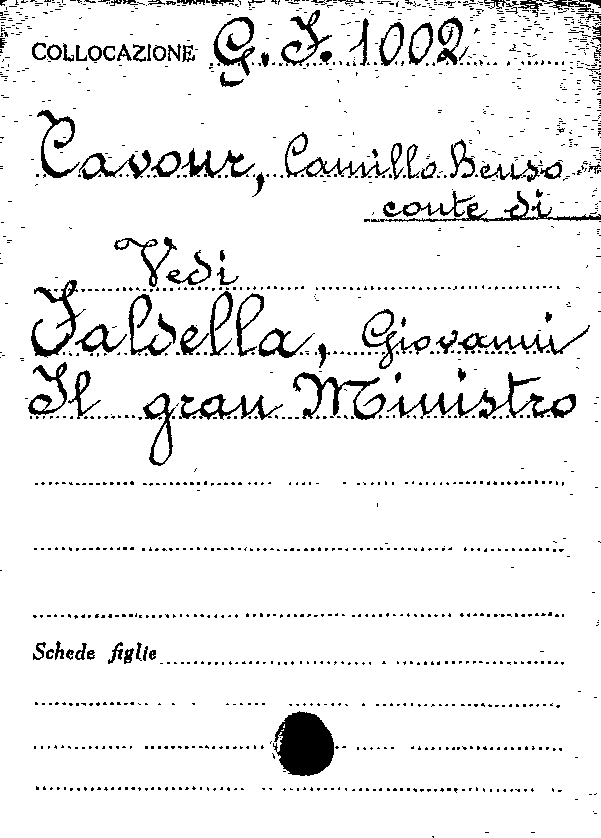 COLLOCAZIONE G. I. 1002
Cavour, Camillo Benso
conte di
Vedi
Faldella, Giovanni
Il gran Ministro
Schede figlie